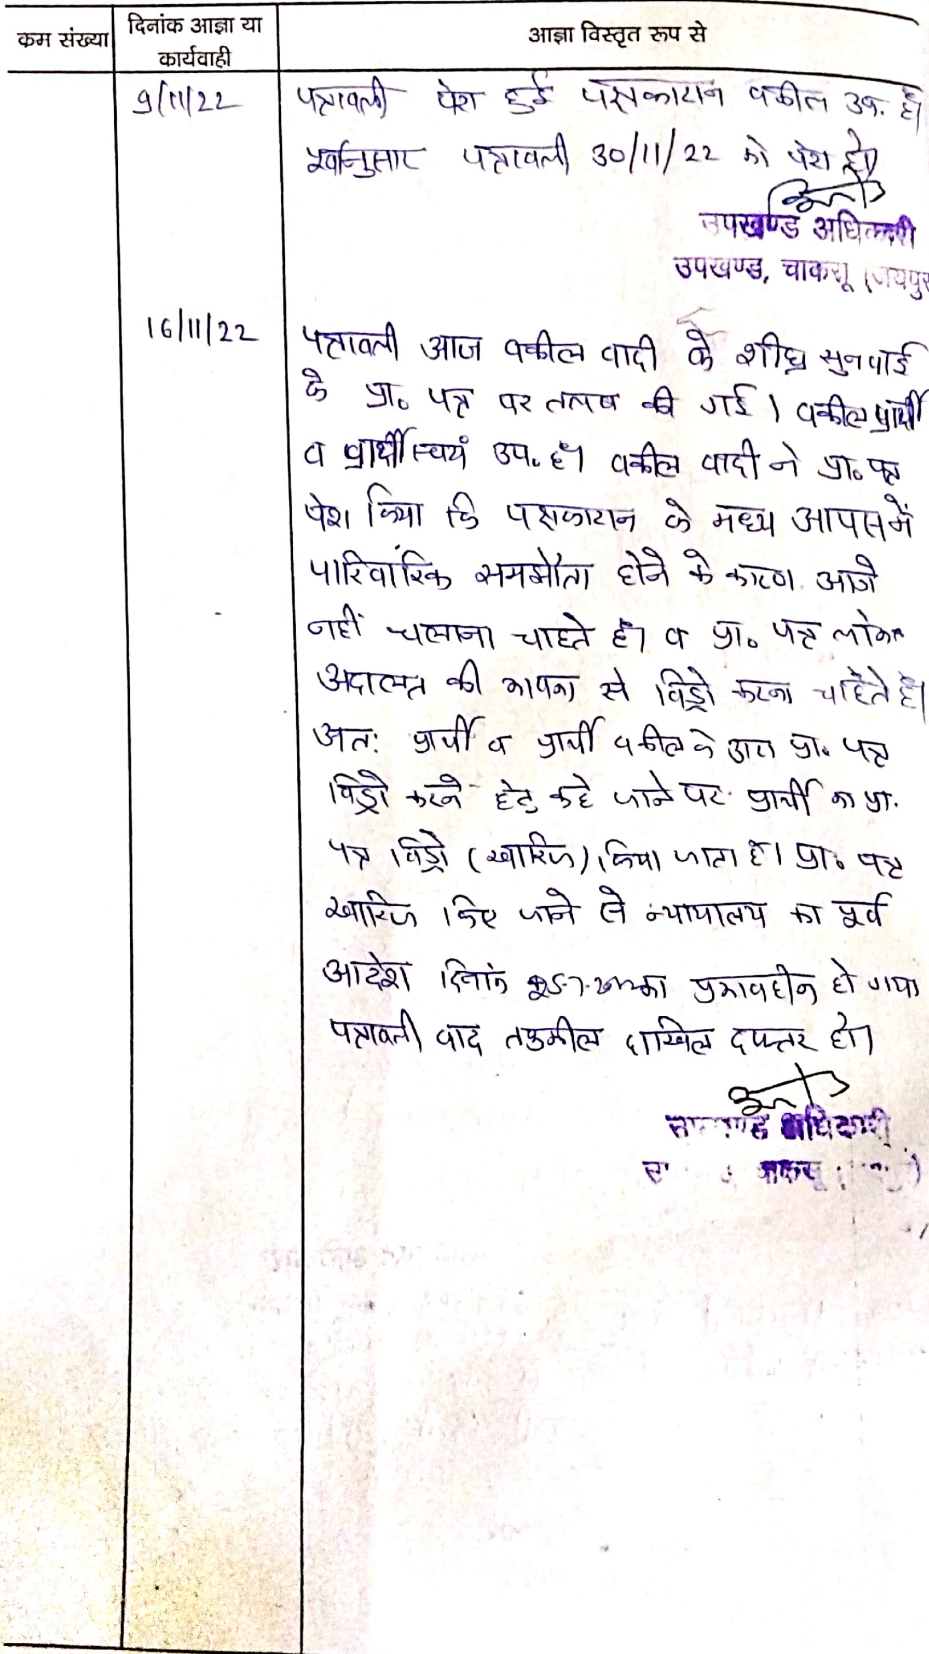 कम संख्या
दिनांक आज्ञा या
कार्यवाही
आज्ञा विस्तृत रूप से
9/11/22
पत्रावली पेश हुई पक्षकारान वकील उप. है।
पूर्वानुसार पत्रावली 30/11/22 को पेश हो।
उपखण्ड अधिकारी
उपखण्ड, चाकसू (जयपुर
16/11/22
पत्रावली आज वकील वादी के शीघ्र सुनवाई
के प्रा० पत्र पर तलब की गई। वकील प्रार्थी
व प्रार्थी स्वयं उप. है। वकील वादी ने प्रा० पत्र
पेश किया कि पक्षकारान के मध्य आपस में
पारिवारिक समझौता होने के कारण आगे
नहीं चलाना चाहते है। व प्रा० पत्र लोक
अदालत की भावना से विड्रो करना चाहते है।
अतः प्रार्थी व प्रार्थी वकील के द्वारा प्रा० पत्र
विड्रो करने हेतु कहे जाने पर प्रार्थी का प्रा.
पत्र विड्रो (खारिज) किया जाता है। प्रा० पत्र
खारिज किए जाने से न्यायालय का पूर्व
आदेश दिनांक का प्रभावहीन हो गया
पत्रावली वाद तकमील दाखिल दफ्तर हो।
अधिकारी
चाकसू